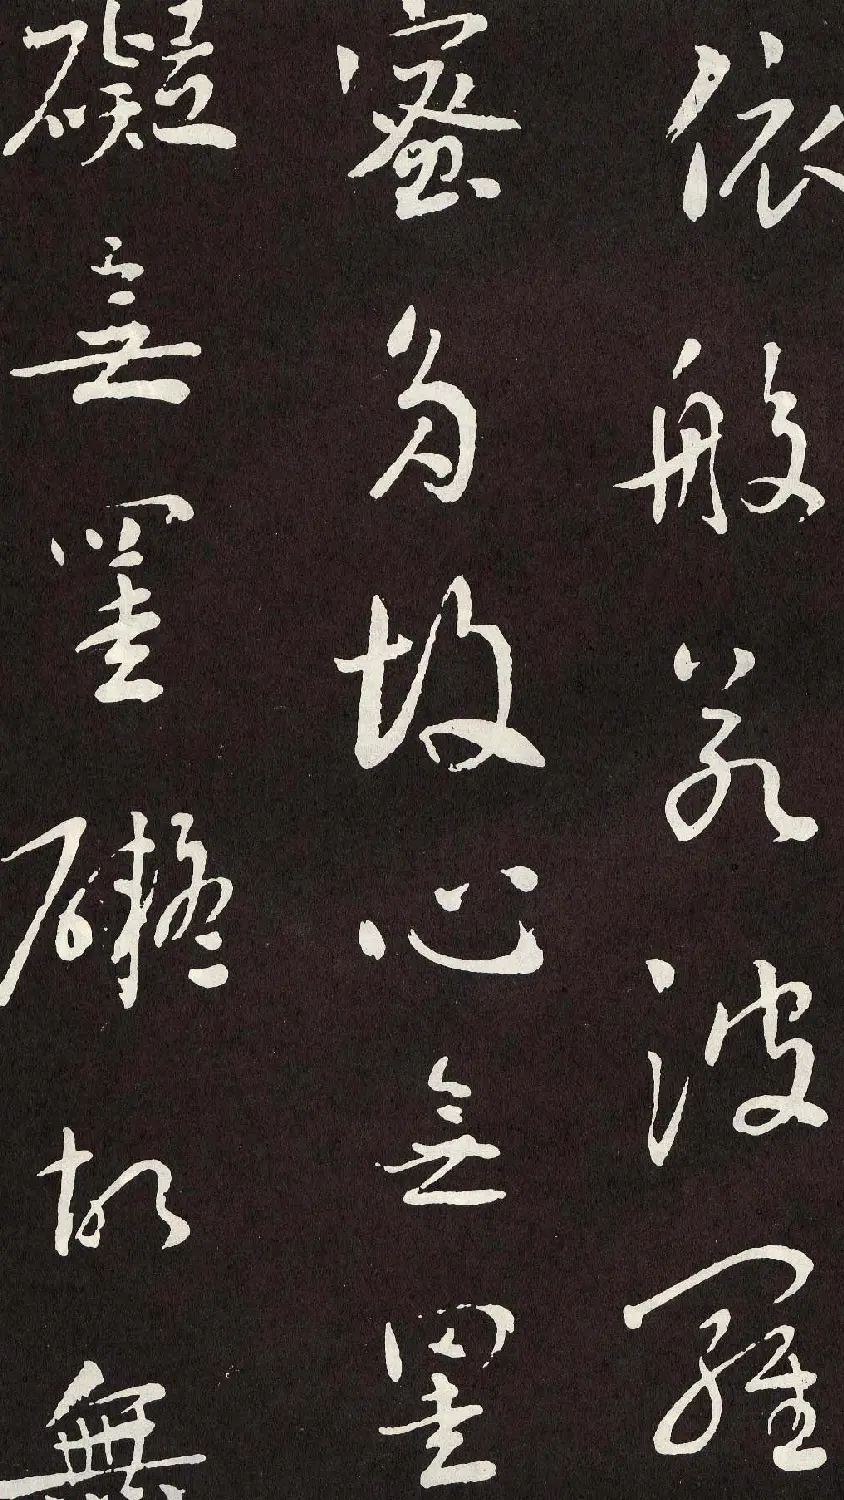 依般若波羅
蜜多故心無罣
礙無罣礙故無